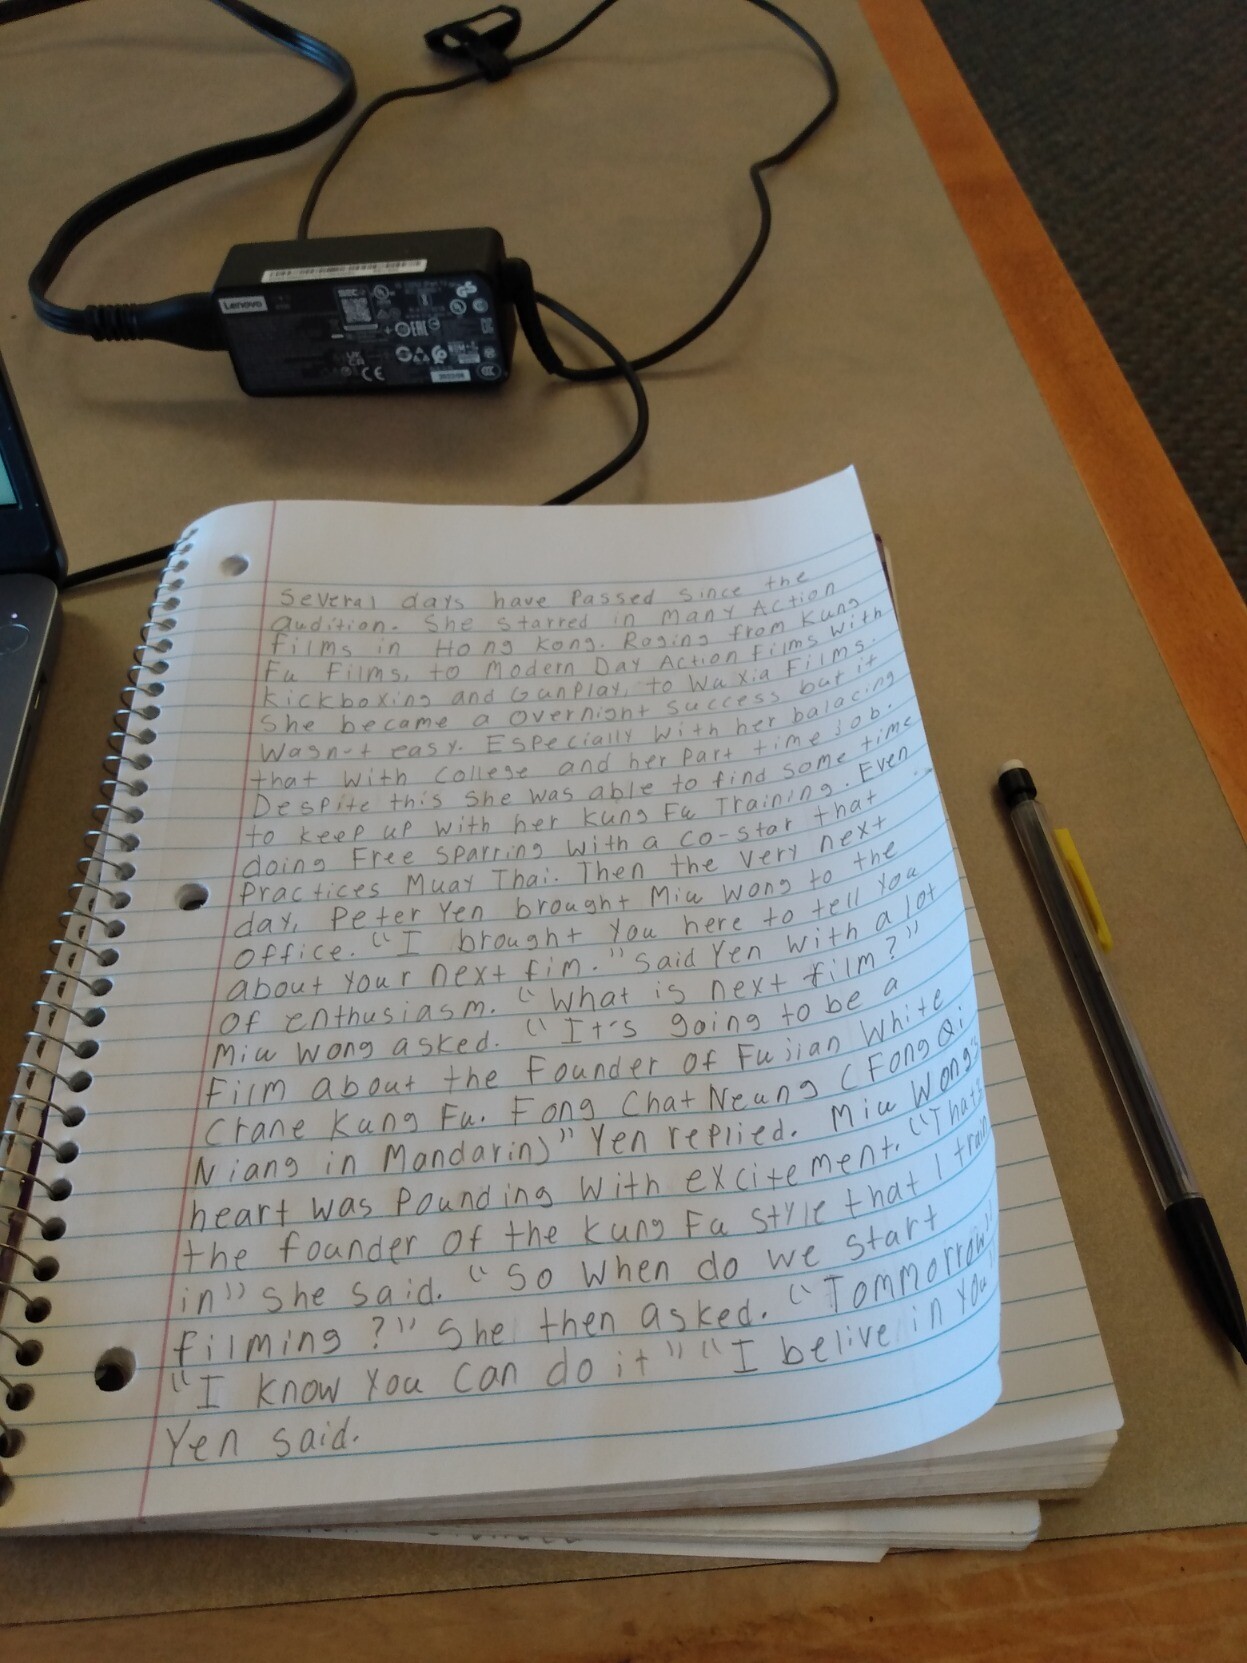 Lenovo
EAC
UK
CA
CE
Several days have Passed since the
audition. She starred in Many Action
films in Hong Kong. Roging from Kung
Fu Films, to Modern Day Action Films with
Kickboxing and Gunplay, to Wuxia Films.
She became a overnight success but it
wasn't easy. Especially with her balacing
that with college and her Part time job.
Despite this she was able to find some time
to keep up with her Kung Fu Training. Even
doing Free Sparring with a co-star that
Practices Muay Thai. Then the very next
day, Peter Yen brought Miu Wong to the
office. "I brought you here to tell you
about your next fim." said Yen with a lot
of enthusiasm. "What is next film?"
Miu Wong asked. "It's going to be a
Film about the Founder of Fujian White
Crane Kung Fu. Fong Chat Neung (Fong Qi
Niang in Mandarin)" Yen replied. Miu Wong's
heart was Pounding with excitement. "That's
the founder of the Kung Fu style that I train
in" she said. "So when do we start
filming?" She then asked. "Tommorrow"
"I know you can do it" "I belive in you"
Yen said.